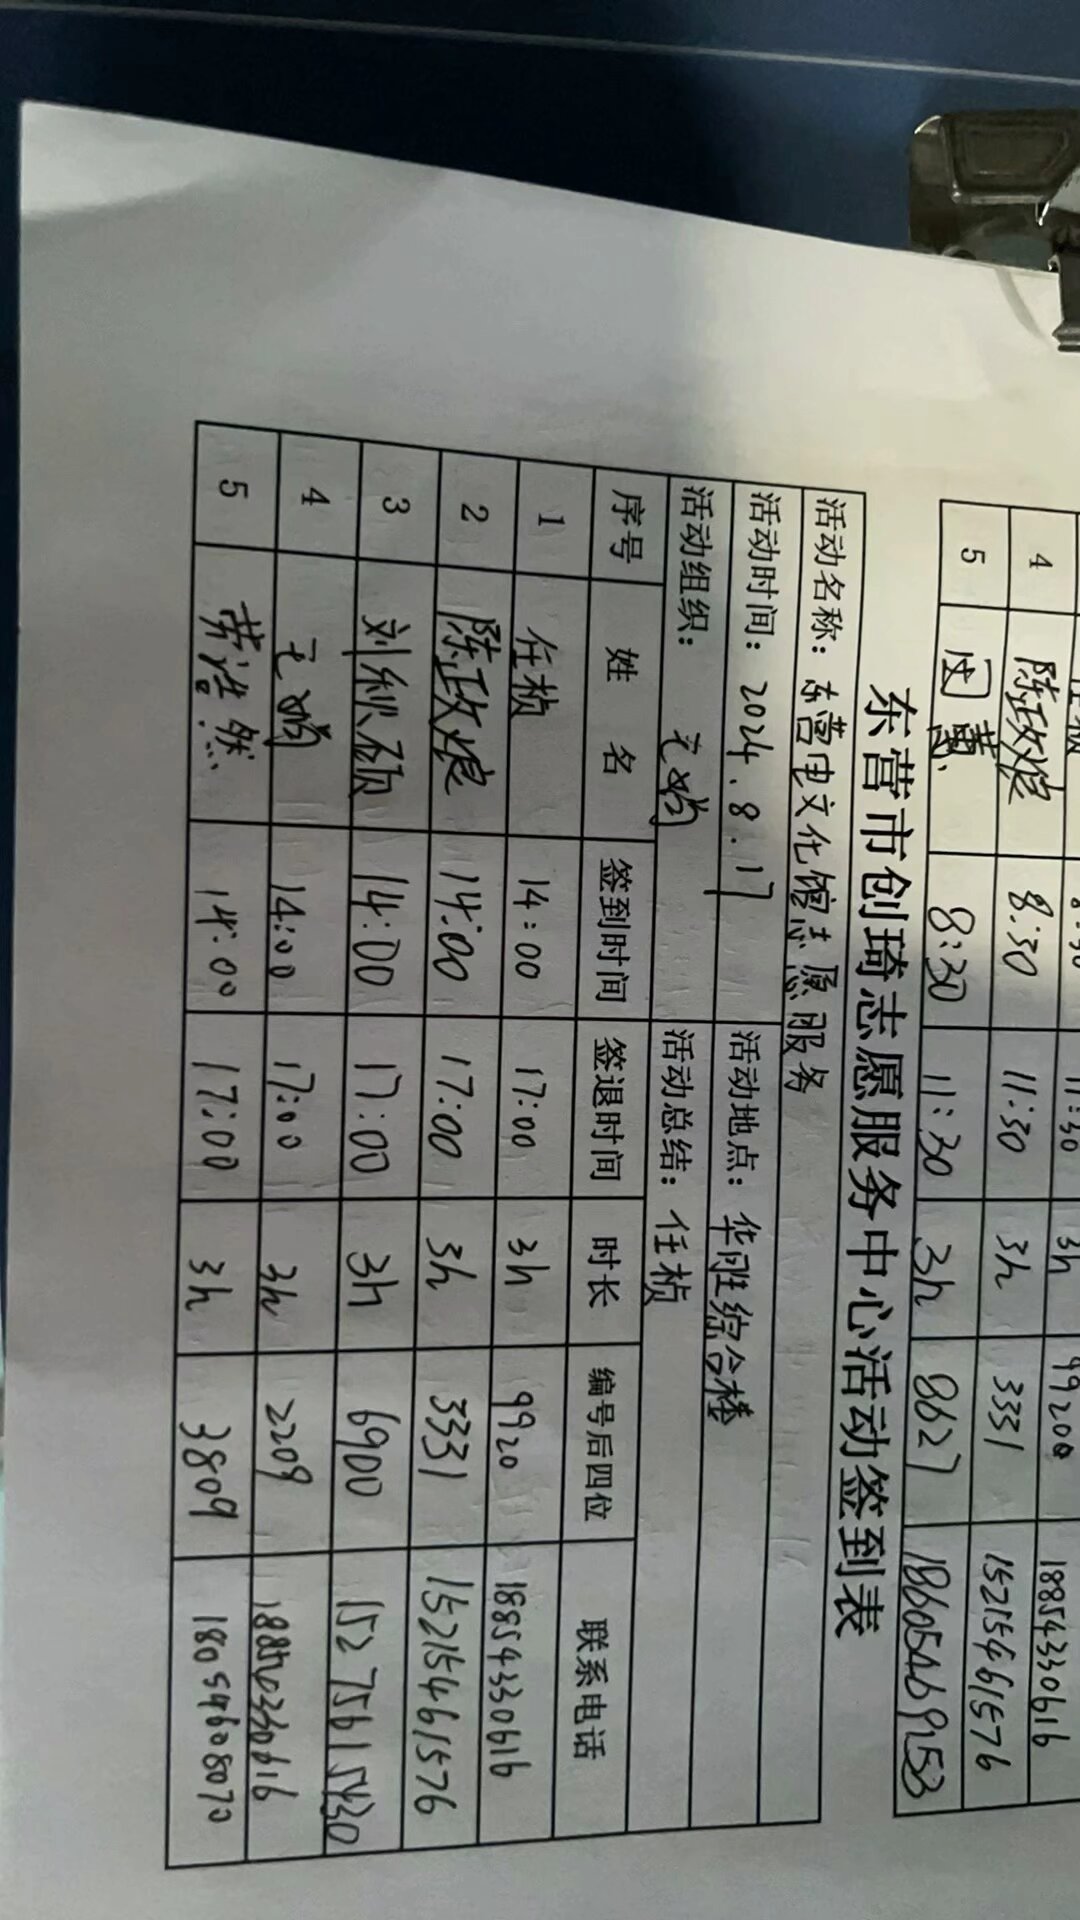 4 陈政煊 8:30 11:30 3h 3331 15215461576
5 8:30 11:30 3h 8627 18605469153
18854330616
东营市创琦志愿服务中心活动签到表
活动名称：东营电文化馆志愿服务
活动时间：2024.8.17 活动地点：华胜综合楼
活动组织： 活动总结：任桢
序号 姓 名 签到时间 签退时间 时长 编号后四位 联系电话
1 任桢 14:00 17:00 3h 9920 18854330616
2 陈政煊 14:00 17:00 3h 3331 15215461576
3 14:00 17:00 3h 6900 15275615430
4 14:00 17:00 3h 2209
5 14:00 17:00 3h 3809 18054608070